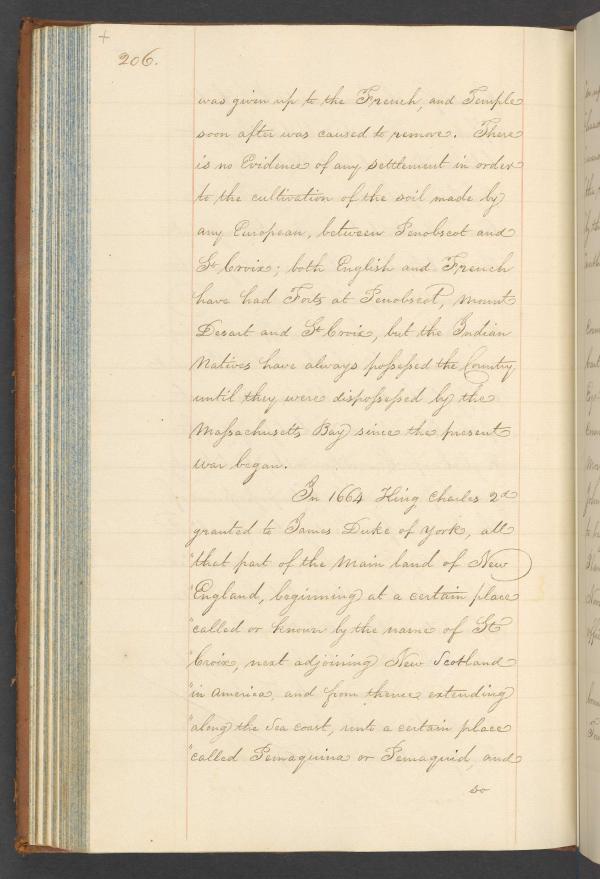 +
206.
was given up to the French, and Temple
soon after was caused to remove. There
is no Evidence of any settlement in order
to the cultivation of the soil made by
any European, between Penobscot and
St Croix; both English and French
have had Forts at Penobscot, mount
Desart and St Croix, but the Indian
Natives have always possessed the Country
until they were dispossessed by the
Massachusetts Bay since the present
war began.
In 1664 King Charles 2d
granted to James Duke of York, all
"that part of the main land of New
"England, beginning at a certain place
"called or known by the name of St
"Croix, next adjoining New Scotland
"in America, and from thence extending
"along the Sea coast, unto a certain place
"called Pemaquina or Pemaquid, and
so